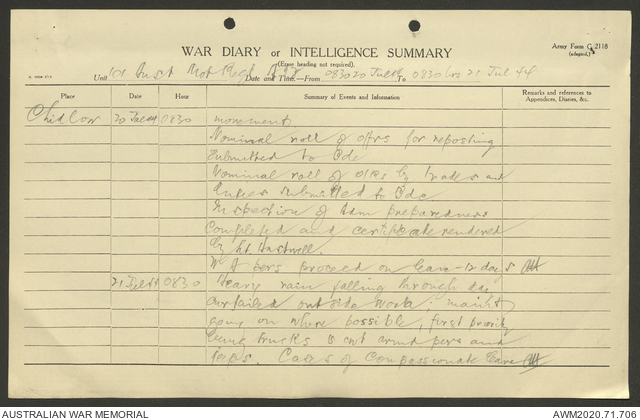 Army Form C. 2118
(adapted.)
WAR DIARY or INTELLIGENCE SUMMARY
(Erase heading not required).
Unit 101 Aust Mot Regt AIF Date and Time—From 0830 20 July To 0830 hrs 21 Jul 44
Place Date Hour Summary of Events and Information Remarks and references to Appendices, Diaries, &c.
Chidlow 20 0830 movement
Nominal roll of offrs for reposting
submitted to Bde
Nominal roll of ORs by trades and
submitted to Bde
Inspection of Adm preparedness
completed and certificate rendered
by Lt Hartwell.
pers proceed on leave - 12 days
21 0830 Heavy rain falling through day
curtailed outside work; maint
going on where possible, first priority
being trucks & armd pers and
Cases of Compassionate leave
AUSTRALIAN WAR MEMORIAL
AWM2020.71.706